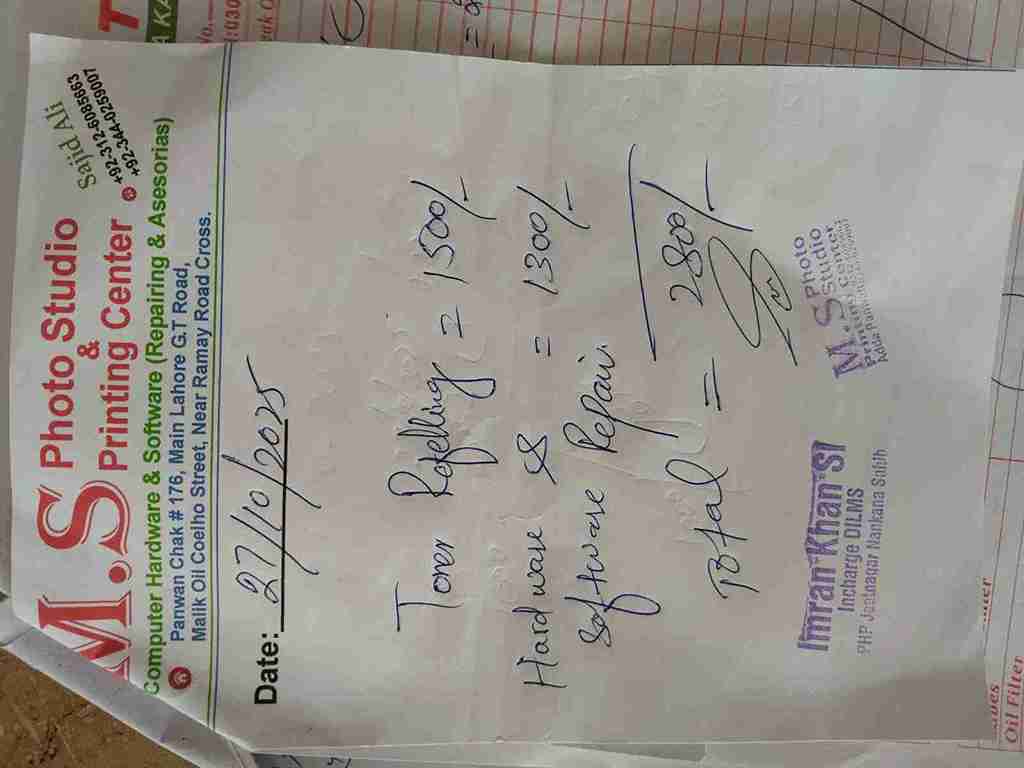 M.S Photo Studio
&
Printing Center
Sajid Ali
+92-312-6085663
+92-344-0259007
Computer Hardware & Software (Repairing & Asesorias)
Panwan Chak # 176, Main Lahore G.T Road,
Malik Oil Coelho Street, Near Ramay Road Cross.
Date: 27/10/2025
Toner Refelling = 1500/-
Hardware & = 1300/-
Software Repair
Total = 2800/-
M.S Photo
Studio
Imran Khan SI
Incharge DILMS
PHP Jeatnagar Nankana Sahib
Oil Filter